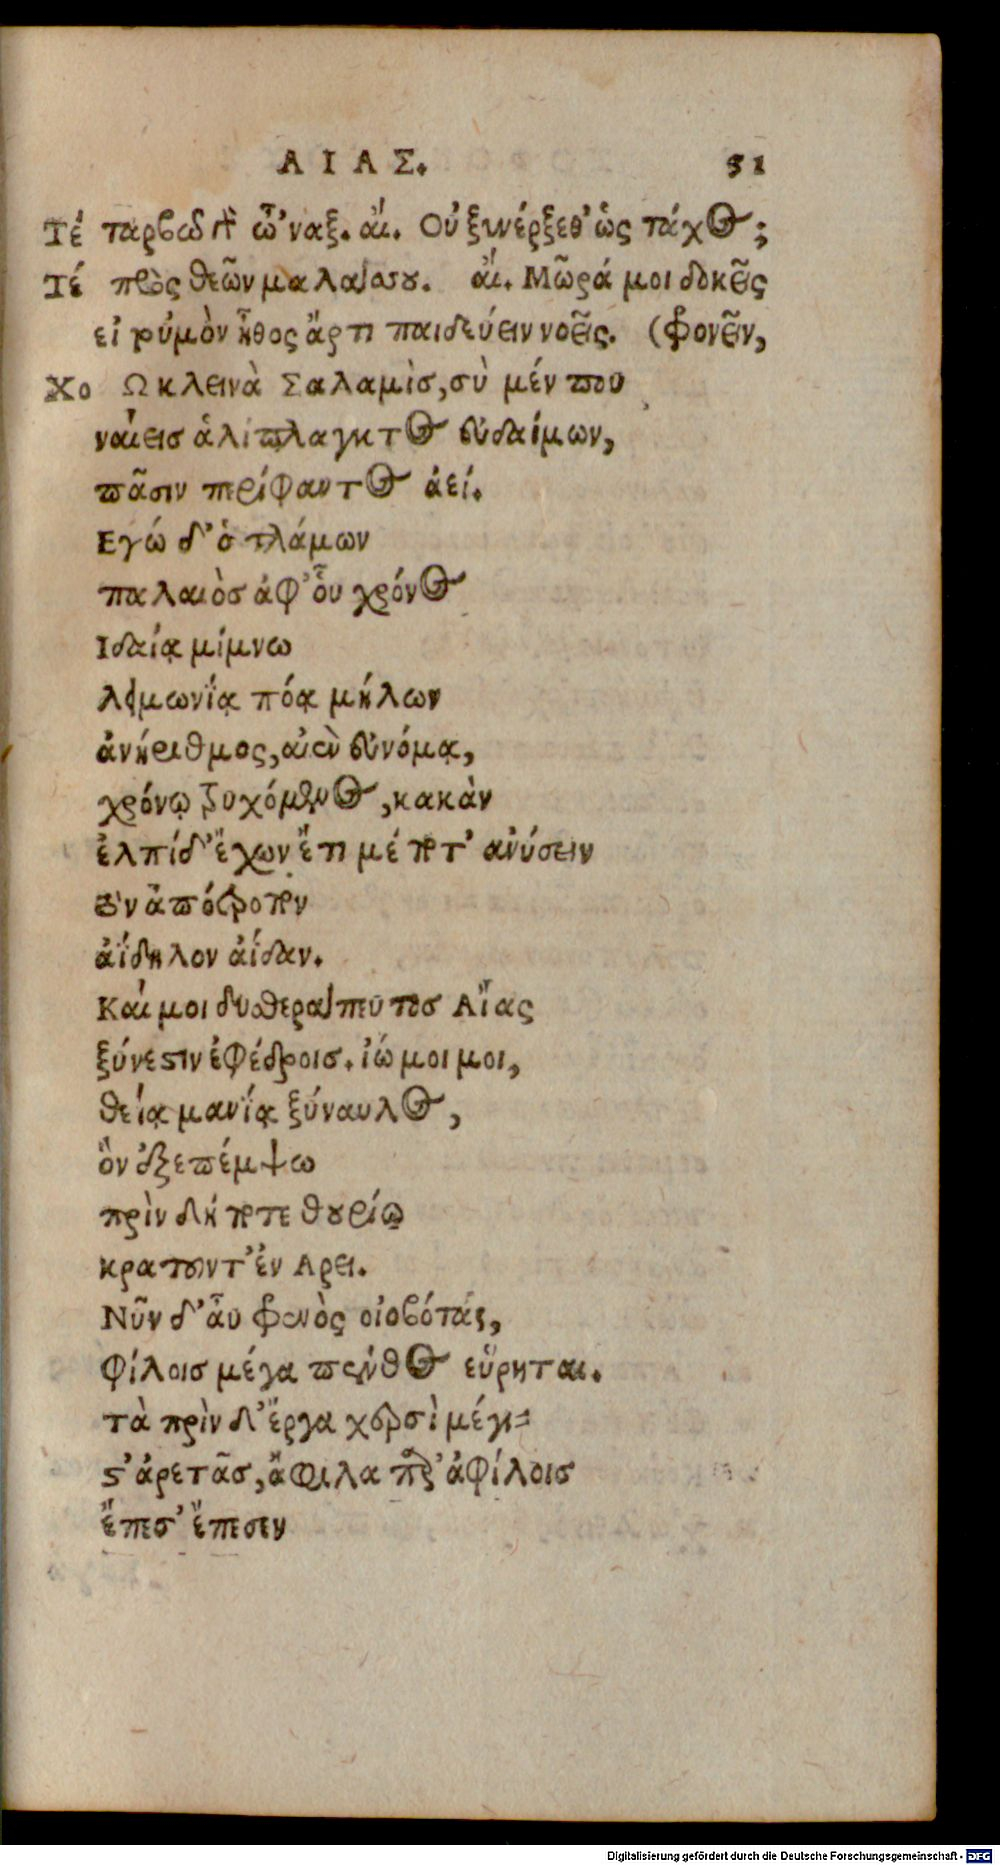 ΑΙΑΣ. 51
Τέ ταρβῶ γὰρ ὦ'ναξ. αἴ. Οὐ ξυνέρξεθ' ὡς τάχος;
Τέ πρὸς θεῶν μαλάσσου. αἴ. Μῶρά μοι δοκεῖς
εἰ τὐμὸν ἦθος ἄρτι παιδεύειν νοεῖς. (φρονεῖν,
Χο Ω κλεινὰ Σαλαμὶς, σὺ μέν που
ναίεις ἁλίπλαγκτος εὐδαίμων,
πᾶσιν περίφαντος ἀεί.
Εγώ δ' ὁ τλάμων
παλαιὸς ἀφ' οὗ χρόνος
Ιδαίᾳ μίμνω
λειμωνΐᾳ πόᾳ μήλων
ἀνήριθμος, αἰὲν εὐνόμᾳ,
χρόνῳ τρυχόμενος, κακὰν
ἐλπίδ' ἔχων ἔτι μέ ποτ' ἀνύσειν
τὸν ἀπότροπον
ἀΐδηλον ἀΐδαν.
Καί μοι δυσθεράπευτος Αἴας
ξύνεστιν ἐφέδροις. ἰώ μοι μοι,
θείᾳ μανίᾳ ξύναυλος,
ὃν ἐξεπέμψω
πρὶν δή ποτε θουρίῳ
κρατοῦντ' ἐν Αρει.
Νῦν δ' αὖ φρενὸς οἰοβότας,
φίλοις μέγα πένθος εὕρηται.
τὰ πρὶν δ' ἔργα χεροῖν μέγι-
στ' ἀρετᾶς, ἄφιλα παρ' ἀφίλοις
ἔπεσ' ἔπεσεν
Digitalisierung gefördert durch die Deutsche Forschungsgemeinschaft - DFG